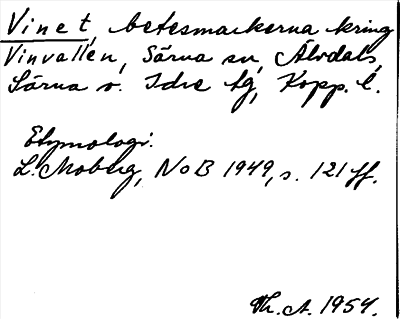 Vinet, betesmarkerna kring
Vinvallen, Särna sn, Älvdals,
Särna o. Idre tg, Kopp. l.
Etymologi:
L. Moberg, NoB 1949, s. 121 ff.
Th. A. 1954.